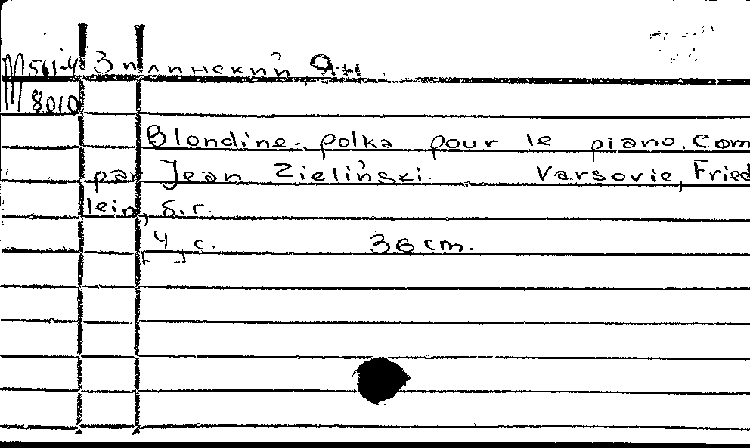 М 561-4 Зилинский, Ян.
8010
Blondine-polka pour le piano. Com
par Jean Zieliński. Varsovie, Fried
lein, s.r.
[4] с. 36 cm.